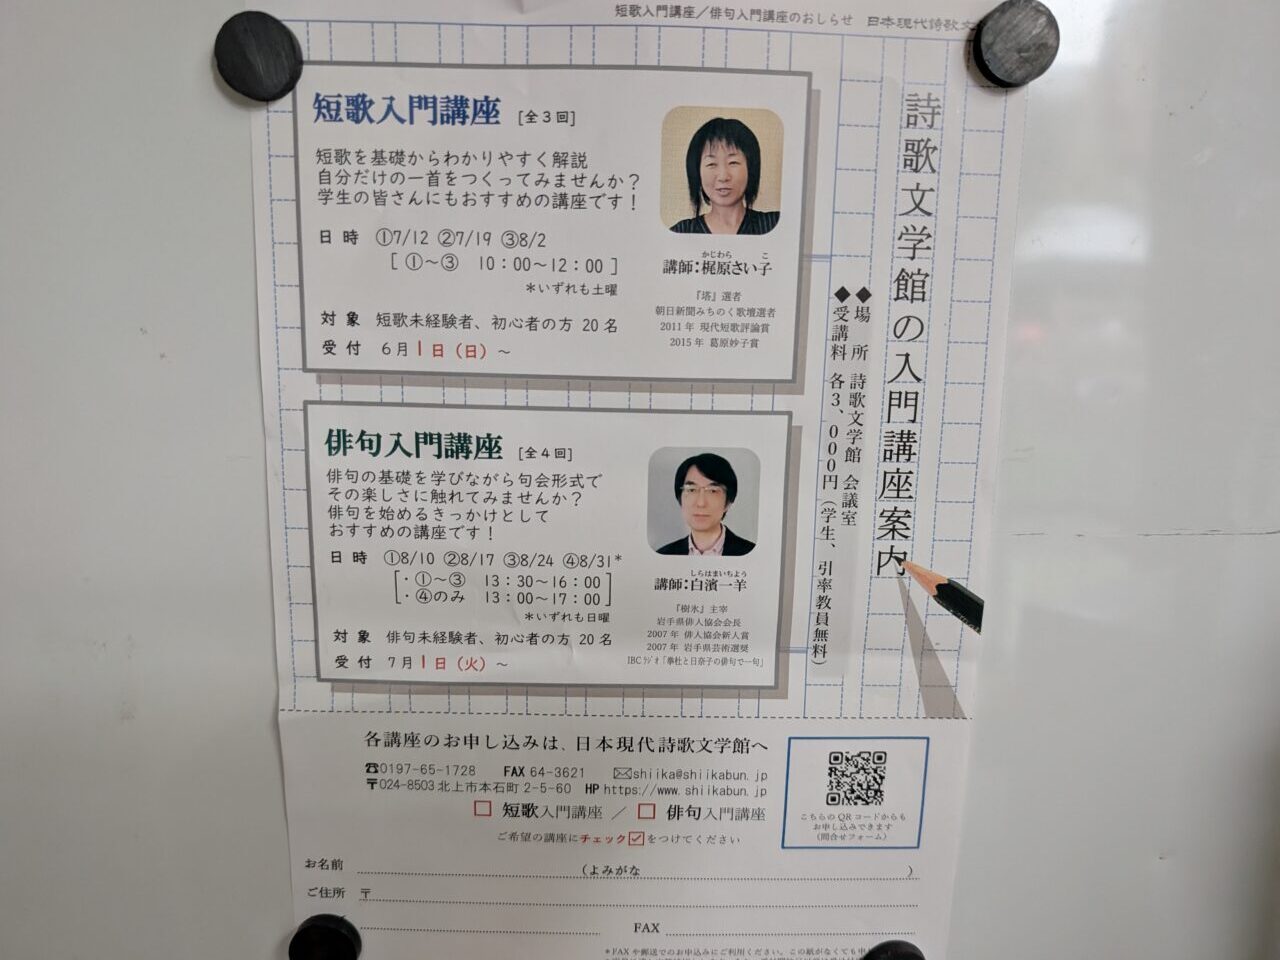 短歌入門講座／俳句入門講座のおしらせ 日本現代詩歌文
詩歌文学館の入門講座案内
◆場 所 詩歌文学館 会議室
◆受講料 各3、000円（学生、引率教員無料）
短歌入門講座 [全3回]
短歌を基礎からわかりやすく解説
自分だけの一首をつくってみませんか？
学生の皆さんにもおすすめの講座です！
日 時 ①7/12 ②7/19 ③8/2
[ ①～③ 10：00～12：00 ]
＊いずれも土曜
対 象 短歌未経験者、初心者の方 20名
受 付 6月1日（日）～
かじわら こ
講師：梶原さい子
『塔』選者
朝日新聞みちのく歌壇選者
2011年 現代短歌評論賞
2015年 葛原妙子賞
俳句入門講座 [全4回]
俳句の基礎を学びながら句会形式で
その楽しさに触れてみませんか？
俳句を始めるきっかけとして
おすすめの講座です！
日 時 ①8/10 ②8/17 ③8/24 ④8/31*
[・①～③ 13：30～16：00]
[・④のみ 13：00～17：00]
＊いずれも日曜
対 象 俳句未経験者、初心者の方 20名
受 付 7月1日（火）～
しらはまいちよう
講師：白濱一羊
『樹氷』主宰
岩手県俳人協会会長
2007年 俳人協会新人賞
2007年 岩手県芸術選奨
IBCラジオ「奉杜と日奈子の俳句で一句」
各講座のお申し込みは、日本現代詩歌文学館へ
☎0197-65-1728 FAX 64-3621 ✉shiika@shiikabun.jp
〒024-8503 北上市本石町2-5-60 HP https://www.shiikabun.jp
□ 短歌入門講座 ／ □ 俳句入門講座
ご希望の講座にチェック☑をつけてください
こちらのQRコードからも
お申し込みできます
（問合せフォーム）
お名前 （よみがな ）
ご住所 〒
FAX
＊FAXや郵送でのお申込みにご利用ください。この紙がなくても申